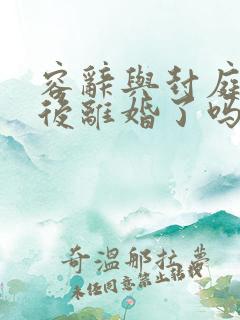 容辭與封庭
後離婚了嗎
奇溫那拉夢
未经同意禁止转载